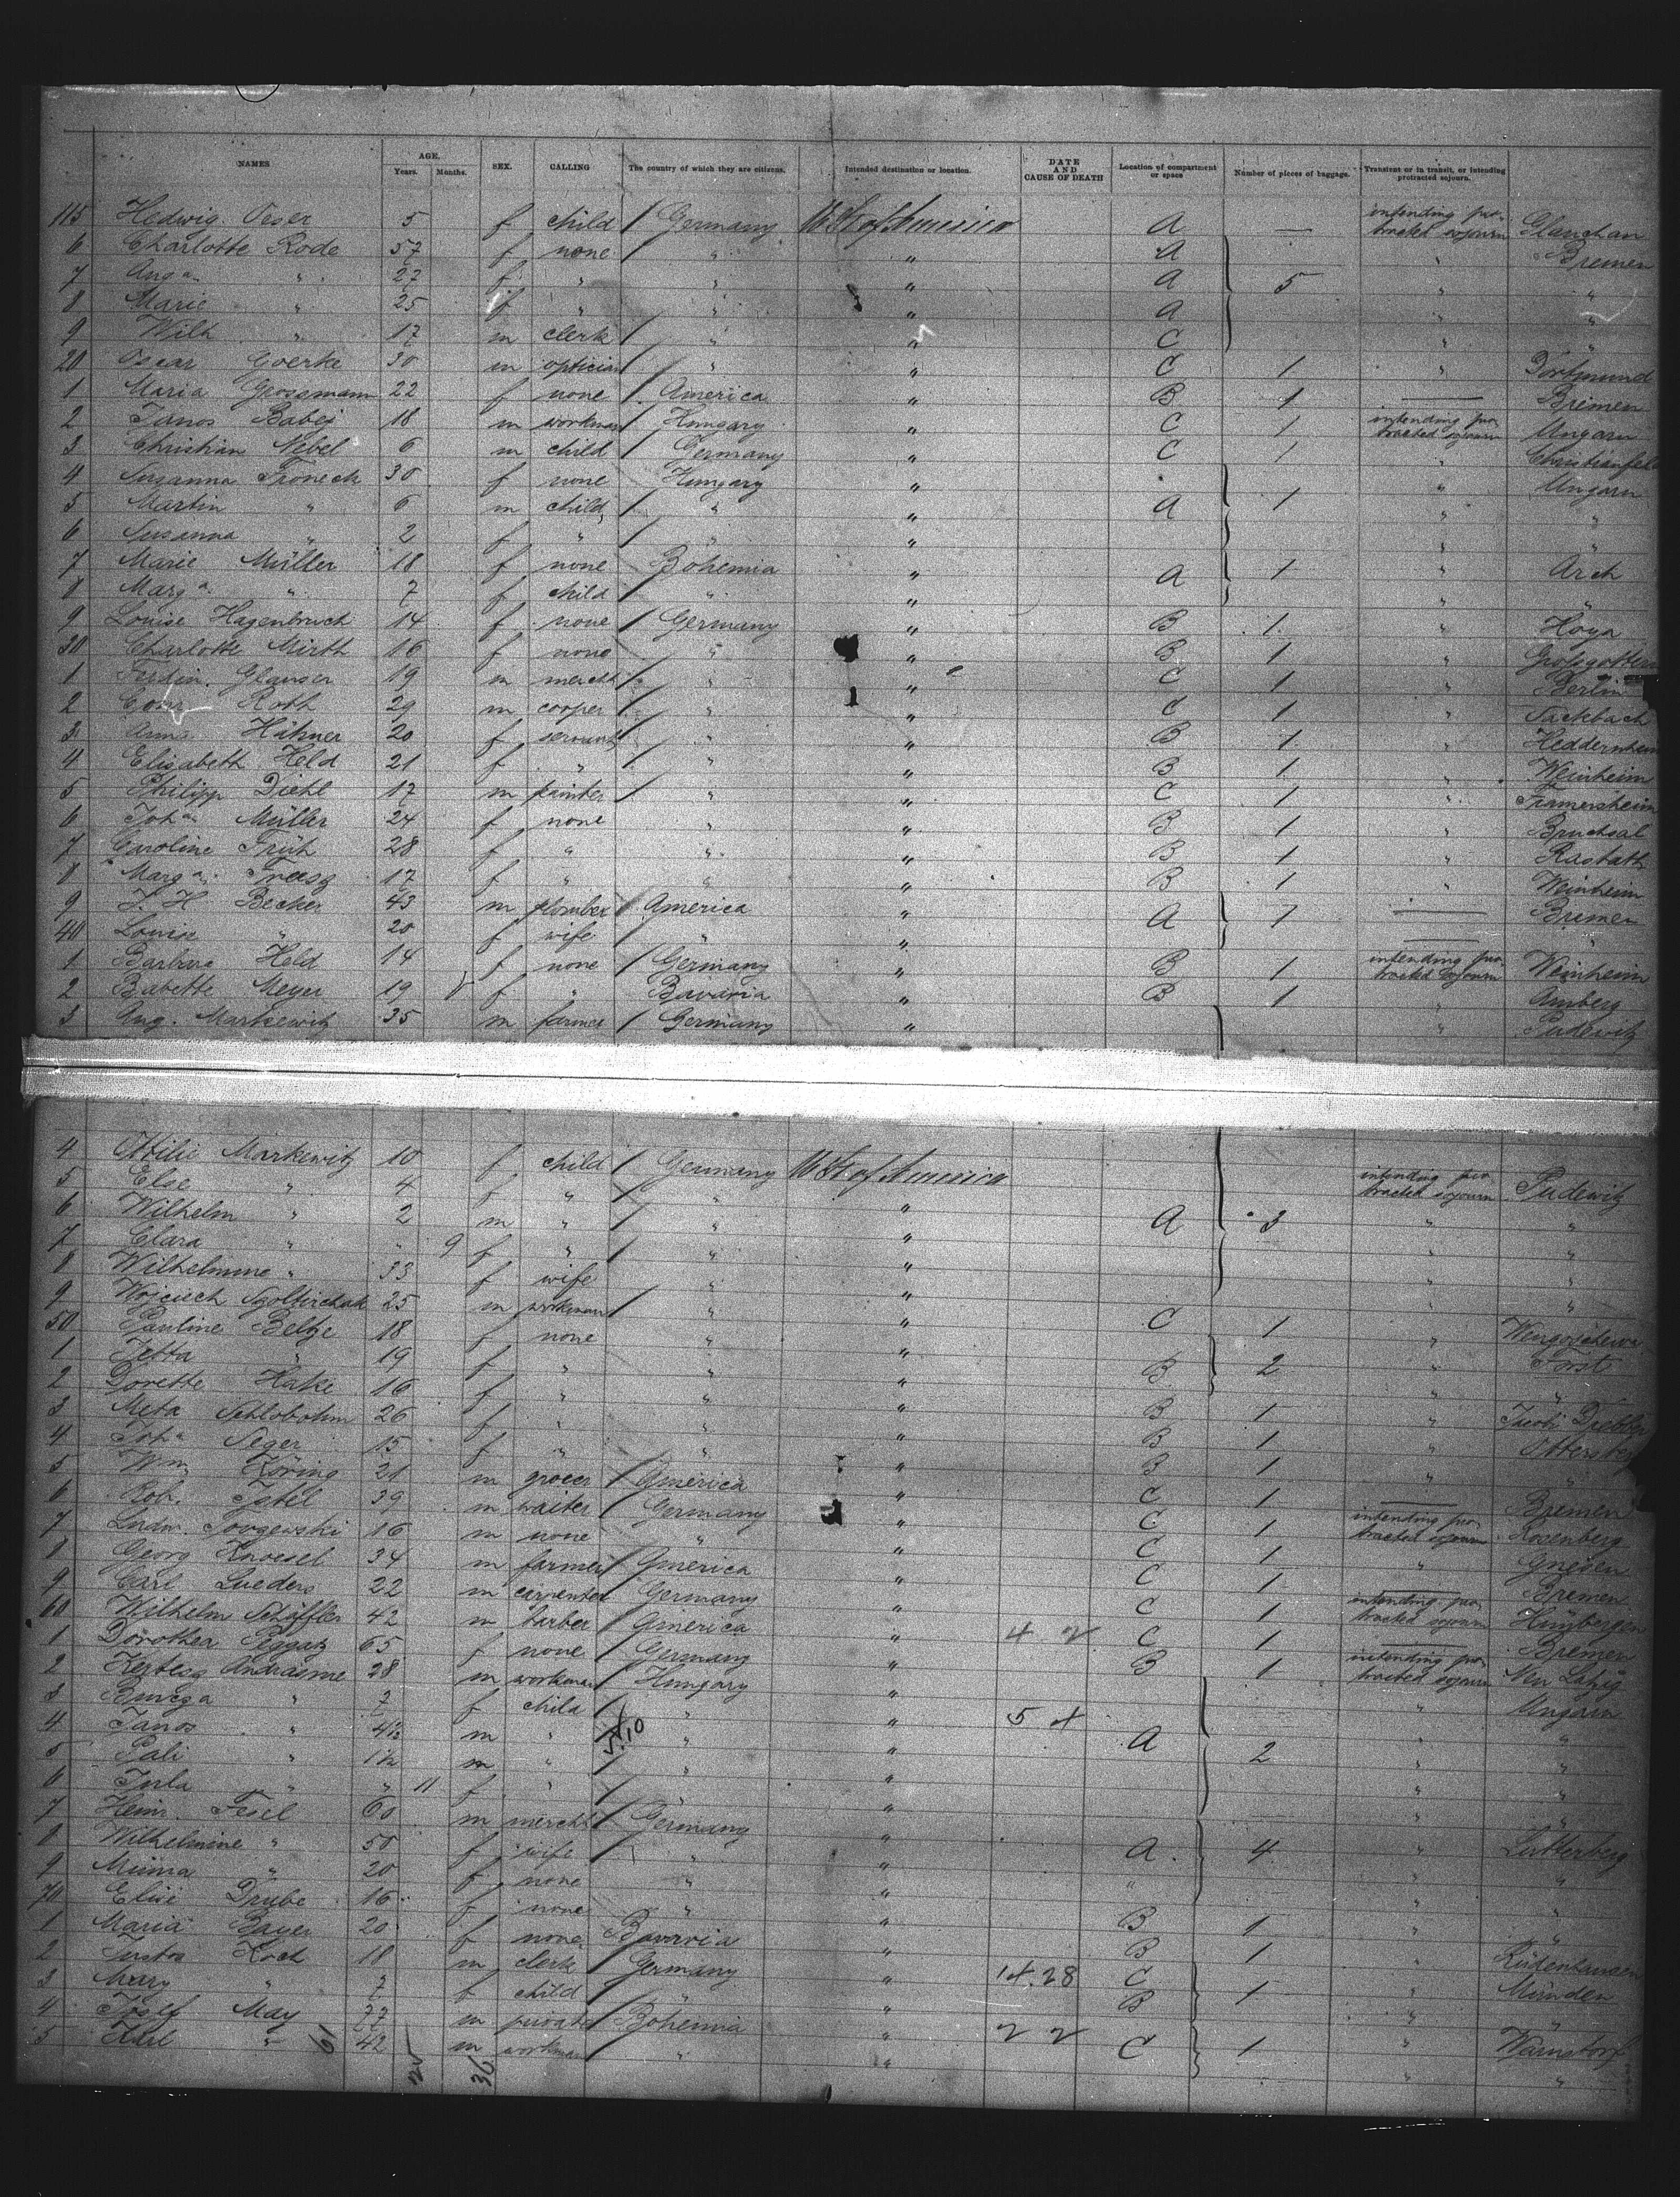 NAMES AGE. Years. Months. SEX. CALLING The country of which they are citizens. Intended destination or location. DATE AND CAUSE OF DEATH Location of compartment or space Number of pieces of baggage. Transient or in transit, or intending protracted sojourn.
115 Hedwig Oeser 5 f child / Germany U St of America A — intending protracted sojourn Glauchau
6 Charlotte Rode 57 f none / " " A " Bremen
7 Auga " 27 f " " " A 5 " "
8 Marie " 25 f " " " A " "
9 Wilh " 17 m clerk / " " C " "
20 Oscar Goerke 30 m optician / " " C 1 " Dortmund
1 Maria Grossmann 22 f none / America " B 1 — Bremen
2 Janos Babej 18 m workman / Hungary " C 1 intending protracted sojourn Ungarn
3 Christian Nebel 6 m child Germany " C 1 " Christianfeld
4 Susanna Troneck 30 f none Hungary " 1 " Ungarn
5 Martin " 6 m child / " " A " "
6 Susanna " 2 f " / " " " "
7 Marie Müller 18 f none Bohemia " A 1 " Arch
8 Marga " 7 f child / " " " "
9 Louise Hagenbruch 14 f none / Germany " B 1 " Hoya
30 Charlotte Mirth 16 f none " " B 1 "
1 Ferdin. Glauser 19 m mercht / " " C 1 " Berlin
2 Conr Roth 29 m cooper / " " C 1 " Sackbach
3 Anna Hähner 20 f servant / " " B 1 " Heddernheim
4 Elisabeth Held 21 f " / " " B 1 " Weinheim
5 Philipp Diehl 17 m painter / " " C 1 " Framersheim
6 Joha Müller 24 f none " " B 1 " Bruchsal
7 Caroline Früh 28 f " " " B 1 " Rastatt
8 Marga Treusg 17 f " " " B 1 " Weinheim
9 J. H Becker 43 m plomber / America " A 7 — Bremen
40 Louise " 20 f wife / " " — "
1 Barbara Held 14 f none / Germany " B 1 intending protracted sojourn Weinheim
2 Babette Meyer 19 f " Bavaria " B 1 " Amberg
3 Aug. Markewitz 35 m farmer / Germany " " Pudewitz
4 Ottilie Markewitz 10 f child / Germany U St of America intending protracted sojourn Pudewitz
5 Else " 4 f " / " " " "
6 Wilhelm " 2 m " / " " A 3 " "
7 Clara " " 9 f " / " " " "
8 Wilhelmine " 33 f wife " " " "
9 Wojciech 25 m workman / " " C 1 " Wengoschewa
50 Pauline Beltze 18 f none " " " Forst
1 Jetta " 19 f " " " B 2 " "
2 Dorette Hake 16 f " " " B 1 "
3 Meta Schlobohm 26 f " " " B 1 " Ottersberg
4 Joha Seger 15 f " " " B 1 " "
5 Wm Köring 21 m grocer / America " C 1 — Bremen
6 Rob. Jstel 39 m waiter / Germany " C 1 intending protracted sojourn Rosenberg
7 Ludw. Jovgewski 16 m none " " C 1 " Gnesen
8 Georg Knoesel 34 m farmer / America " C 1 — Bremen
9 Carl Lueders 22 m carpenter Germany " C 1 intending protracted sojourn
60 Wilhelm Schäffler 42 m barber / America " 4 2 C 1 — Bremen
1 Dorothea Peggatz 65 f none / Germany " B 1 intending protracted sojourn Neu Latzig
2 Kertesz Andrasine 28 m workman / Hungary " " Ungarn
3 " 7 f child / " " 5 4 A 2 " "
4 Janos " 4½ m " 5.10 " " " "
5 Pali " 1½ m " / " " " "
6 Jula " " 11 f " / " " " "
7 Heinr. Fesel 60 m mercht / Germany " " Lutterberg
8 Wilhelmine " 50 f wife " " A 4 " "
9 Minna " 20 f none " " " " "
70 Elise Drube 16 f none " " B 1 " "
1 Maria Bayer 20 f none Bavaria " B 1 " Rüdenhausen
2 Justus Koch 18 m clerk / Germany " 14.28 C 1 " Münden
3 Mary " 7 f child / " " B " "
4 Josef May 77 m private Bohemia " 2 2 C 1 " Warnsdorf
5 Karl " 42 m workman / " " " "
61 25 36